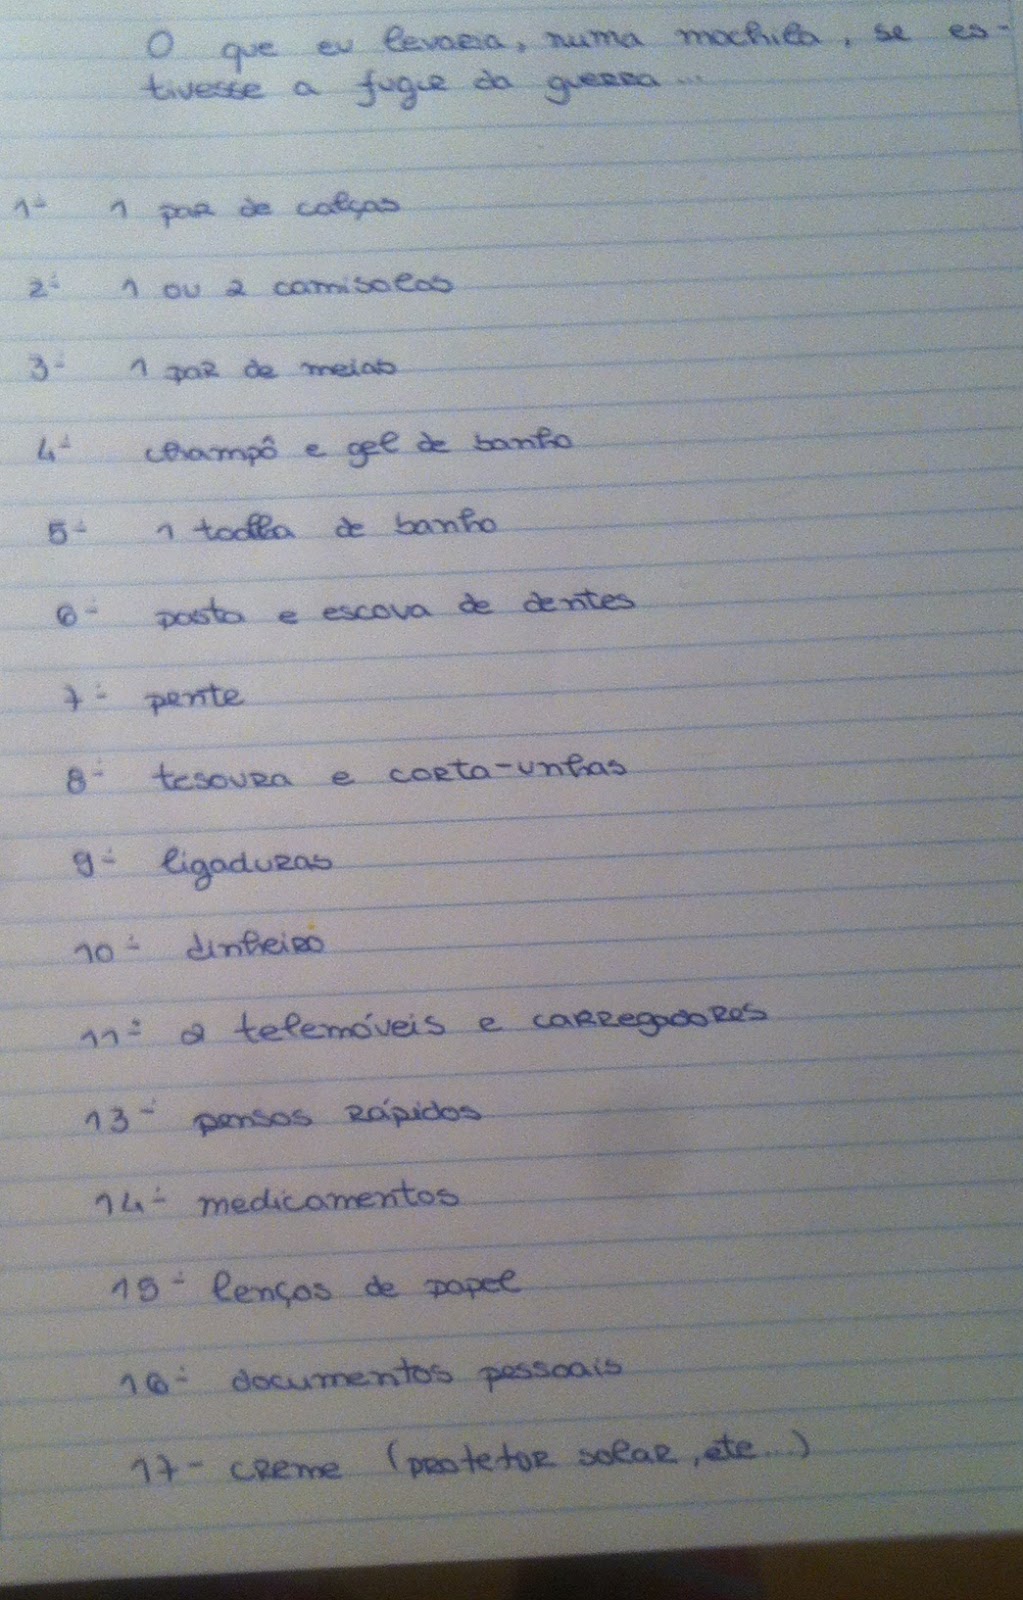 O que eu levaria, numa mochila, se es-
tivesse a fugir da guerra...
1- 1 par de calças
2- 1 ou 2 camisolas
3- 1 par de meias
4- champô e gel de banho
5- 1 toalha de banho
6- pasta e escova de dentes
7- pente
8- tesoura e corta-unhas
9- ligaduras
10- dinheiro
11- 2 telemóveis e carregadores
13- pensos rápidos
14- medicamentos
15- lenços de papel
16- documentos pessoais
17- creme (protetor solar, etc...)